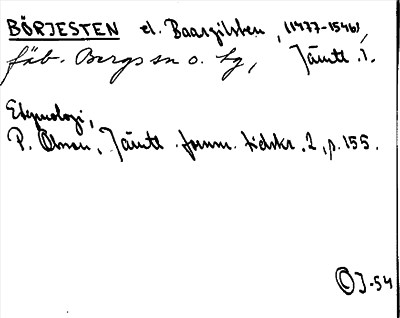 BÖRJESTEN el. Baargilsten, (1477-1546),
fäb. Bergs sn o. tg, Jämtl. l.
Etymologi,
P. Olsson, Jämtl. fornm. tidskr. 2, p. 155.
OJ-54